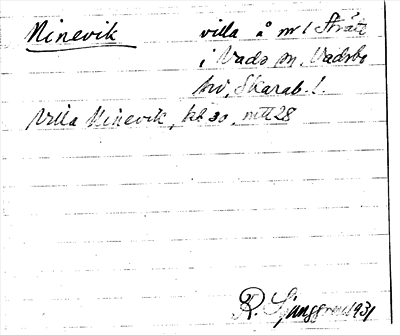 Ninevik villa å nr 1 Stråte
i Vads sn, Vadsbo
hd, Skarab. l.
Villa Ninevik, kb 30, mtl 28
R. Ljunggren 1931